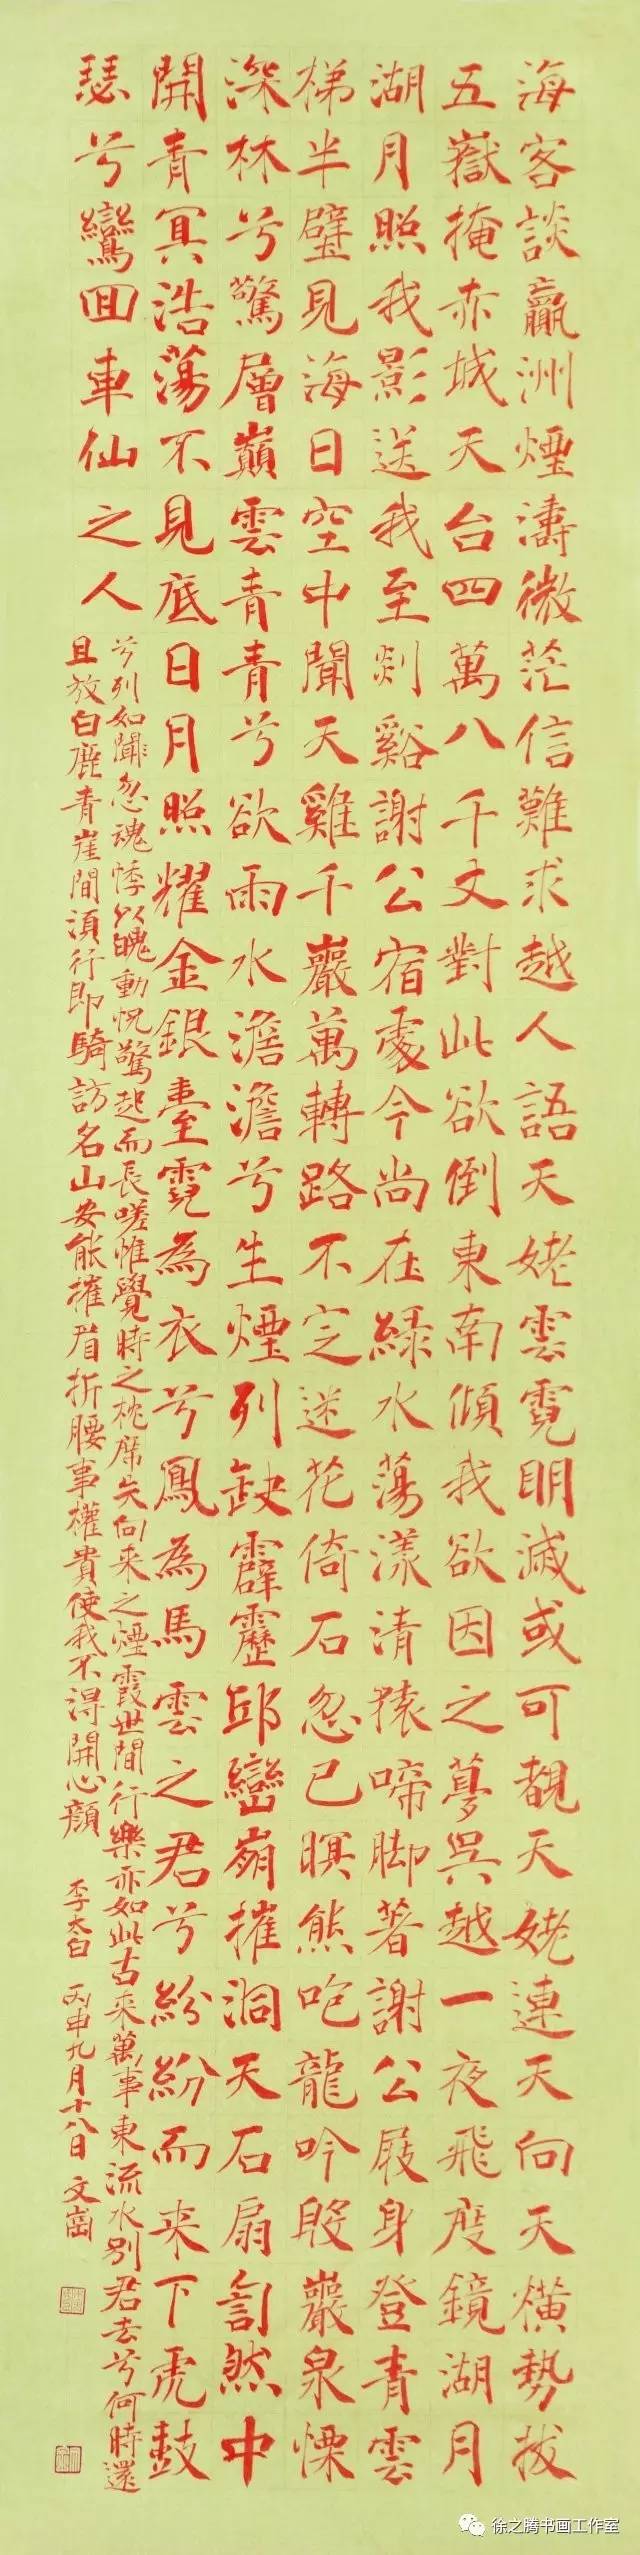 海客談贏洲煙濤微茫信難求越人語天姥雲霓明滅或可覩天姥連天向天橫勢拔
五嶽掩赤城天台四萬八千丈對此欲倒東南傾我欲因之夢吳越一夜飛度鏡湖月
湖月照我影送我至剡谿謝公宿處今尚在綠水蕩漾清猿啼脚著謝公屐身登青雲
梯半壁見海日空中聞天雞千巖萬轉路不定迷花倚石忽已暝熊咆龍吟殷巖泉慄
深林兮驚層巔雲青青兮欲雨水澹澹兮生煙列缺霹靂邱巒崩摧洞天石扇訇然中
開青冥浩蕩不見底日月照耀金銀臺霓為衣兮鳳為馬雲之君兮紛紛而来下虎鼓
瑟兮鸞回車仙之人
兮列如麻忽魂悸以魄動怳驚起而長嗟惟覺時之枕席失向来之煙霞世間行樂亦如此古来萬事東流水別君去兮何時還
且放白鹿青崖間須行即騎訪名山安能摧眉折腰事權貴使我不得開心顏 李太白 丙申九月十八日 文
徐之腾书画工作室